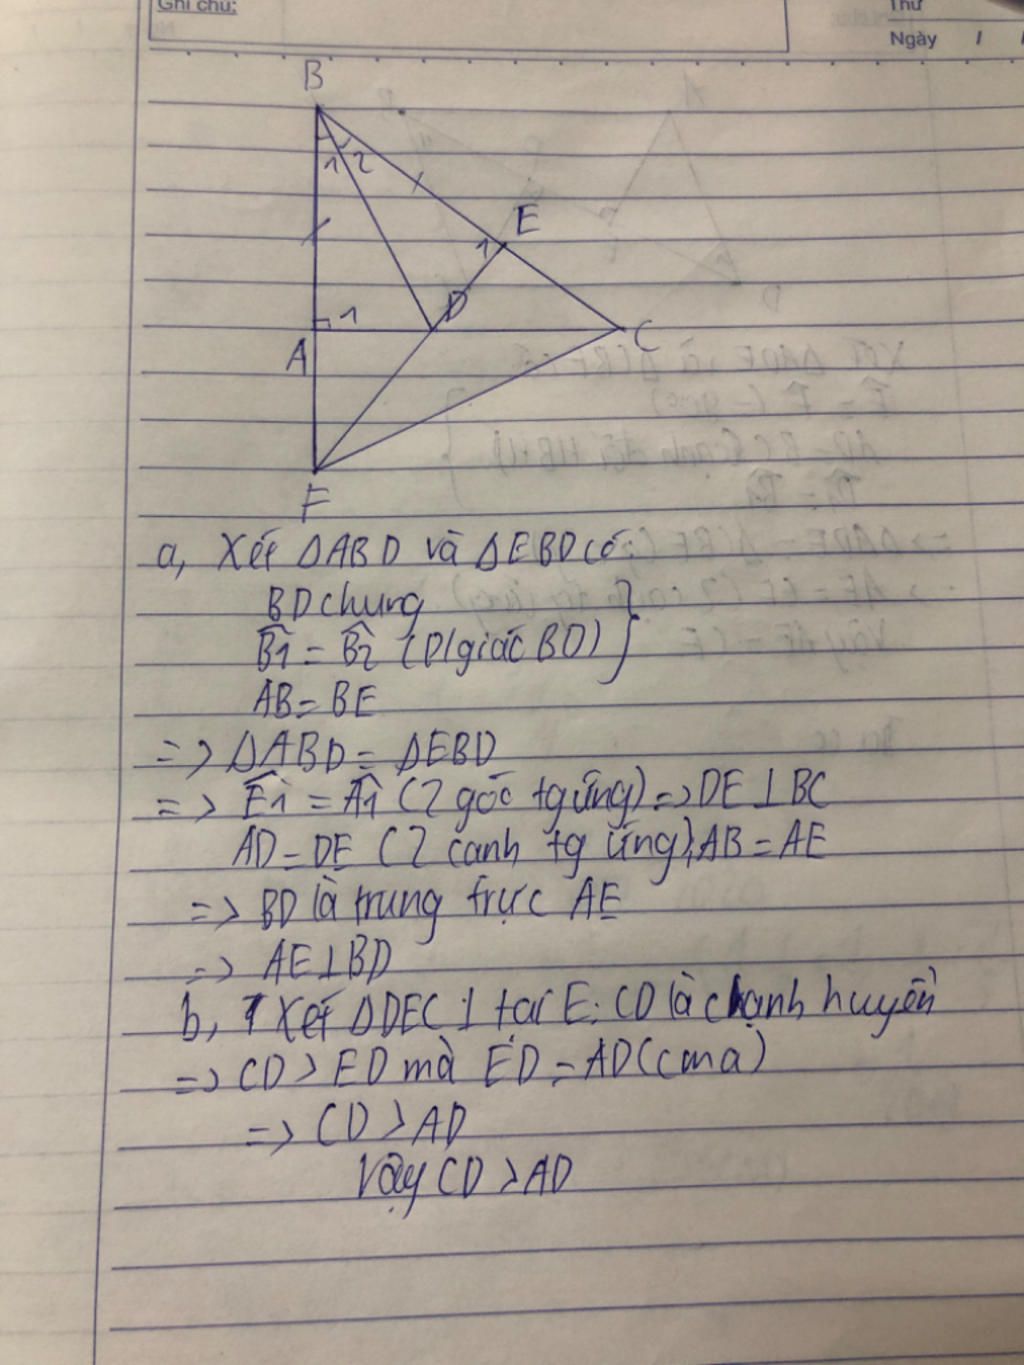 Ghi chú:
Thứ
Ngày / /
B
1 2
E
1
1
D
A
C
F
a, Xét ΔABD và ΔEBD có:
BD chung
B̂1 = B̂2 (P/giác BD) }
AB = BE
=> ΔABD = ΔEBD
=> Ê1 = Â1 (2 góc tg ứng) => DE ⊥ BC
AD = DE (2 canh tg ứng), AB = AE
=> BD là trung trực AE
=> AE ⊥ BD
b, Xét ΔDEC ⊥ tại E: CD là cạnh huyền
=> CD > ED mà ED = AD (cma)
=> CD > AD
Vậy CD > AD